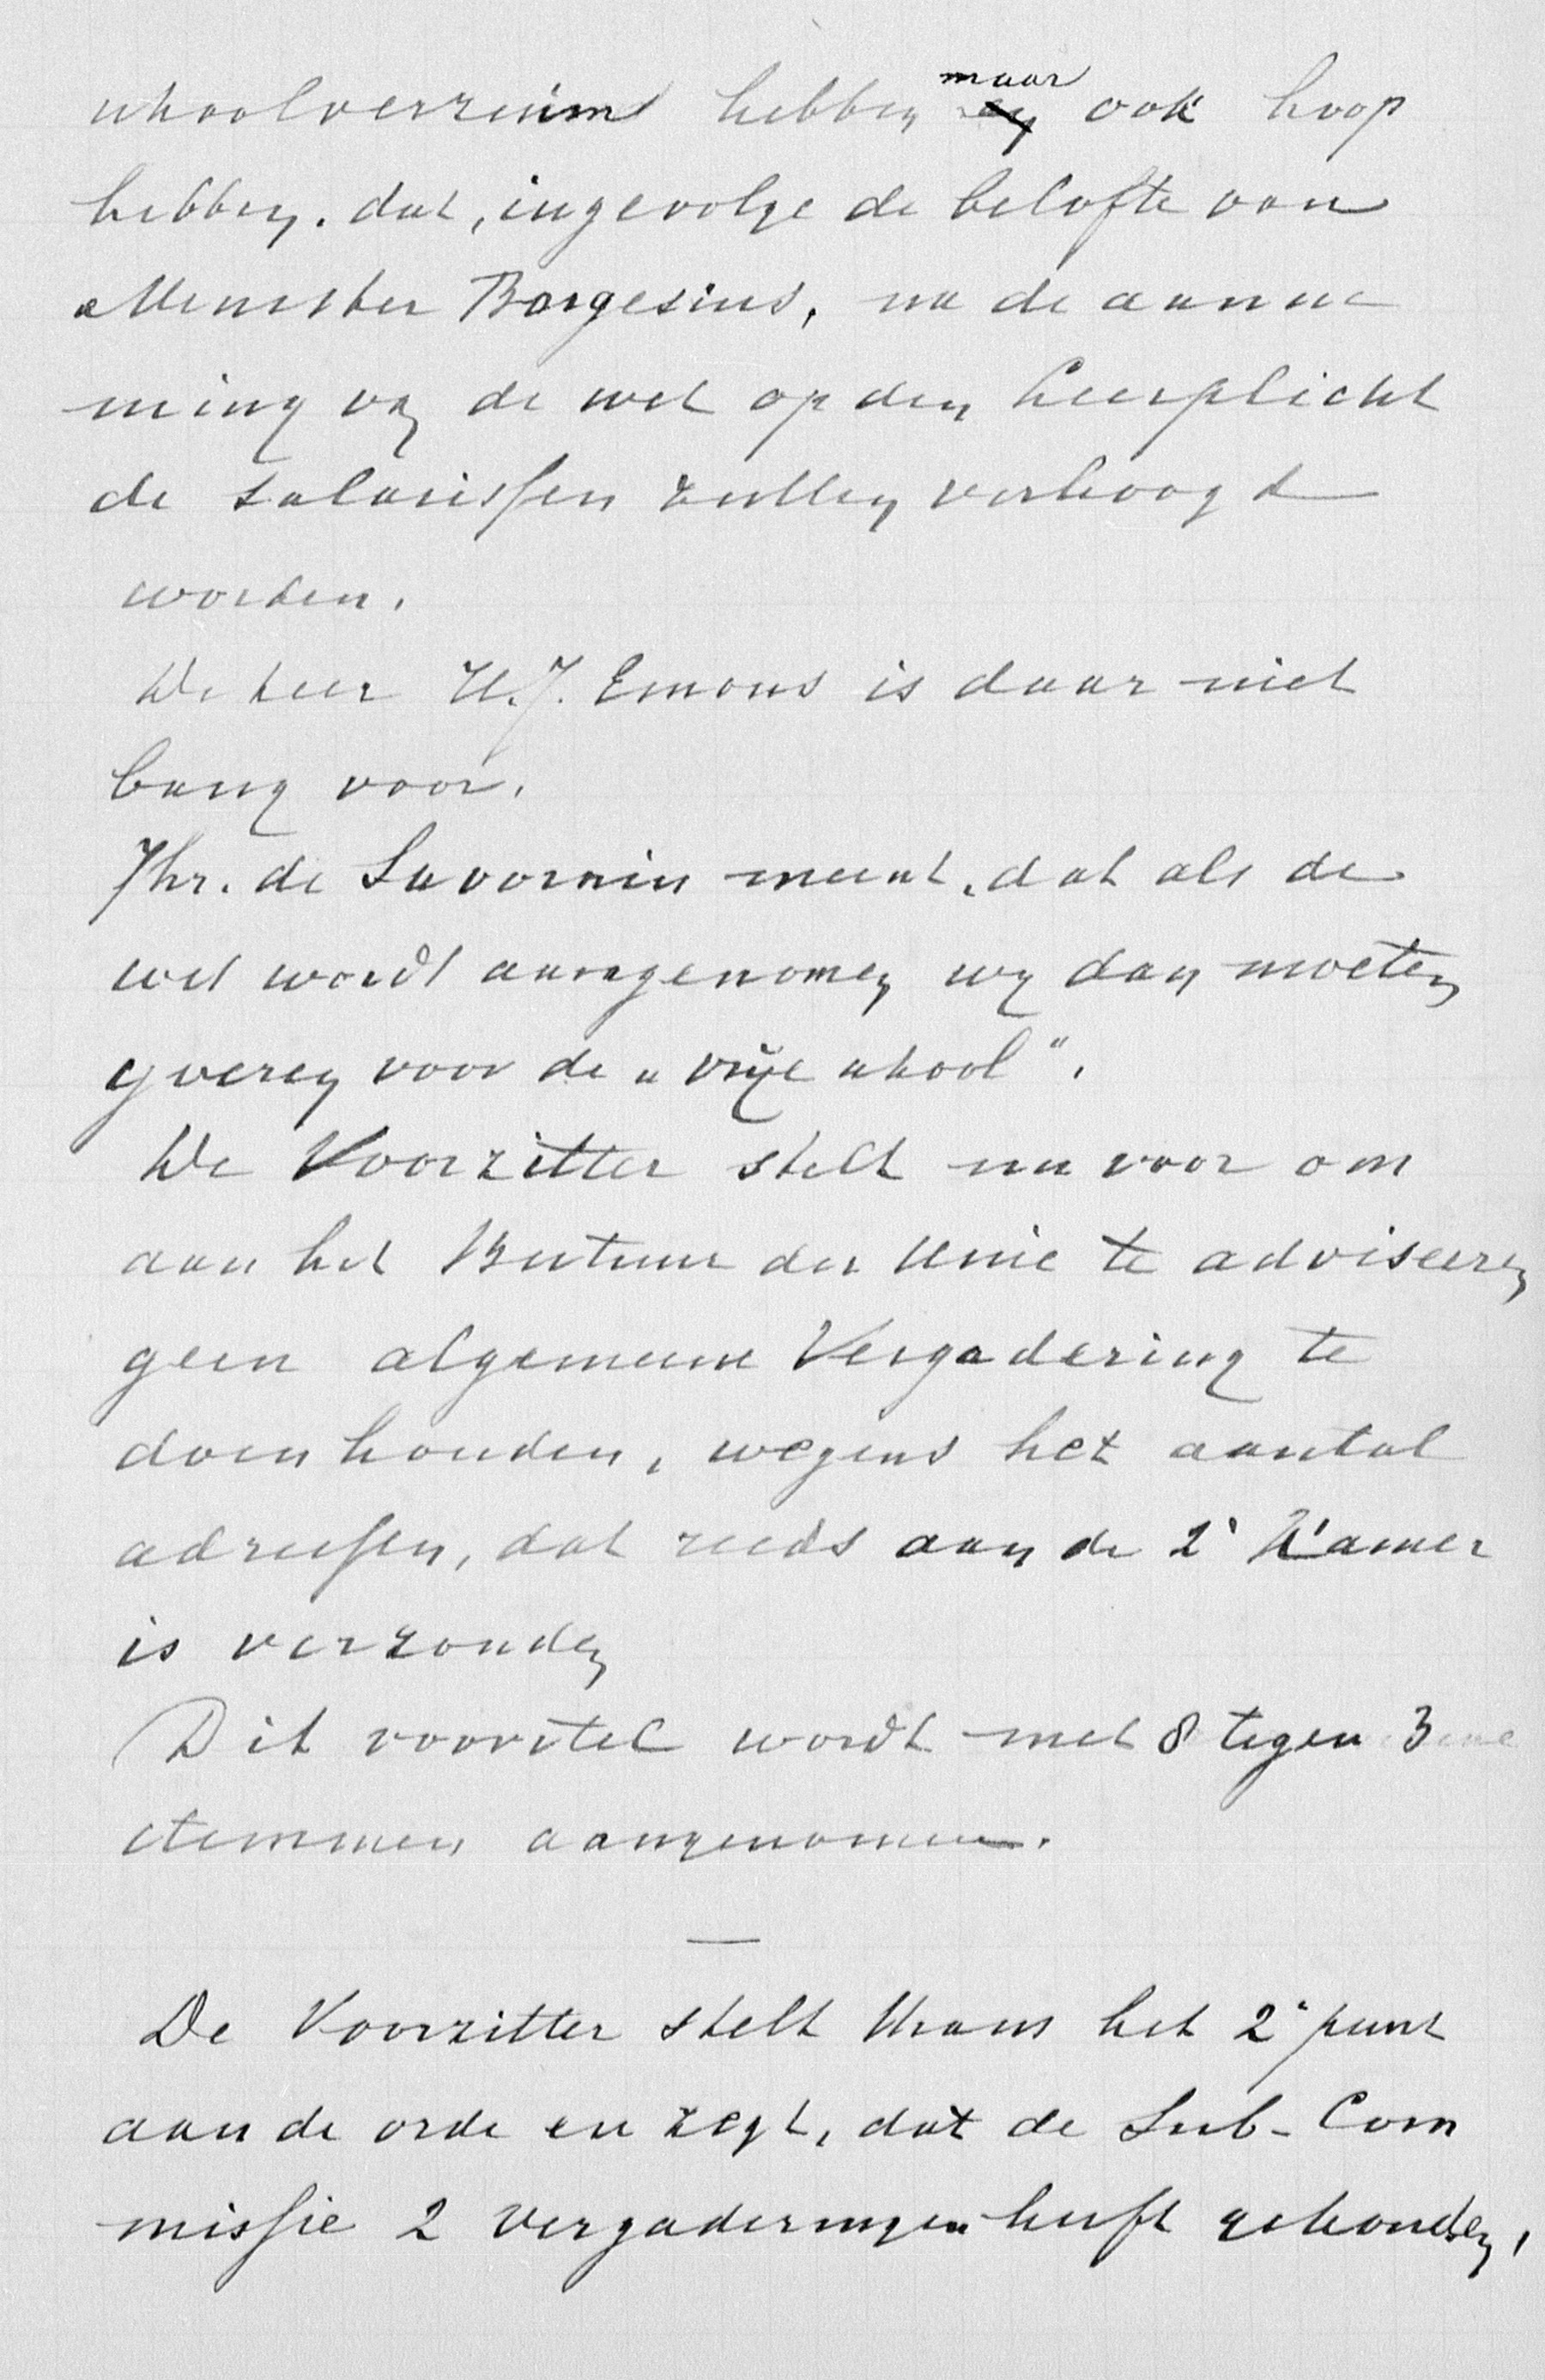 schoolverzuim hebben maar ook hoop
hebben. dat, ingevolge de belofte van
Minister Borgesius, na de aanne
ming van de wet op den Leerplicht
de salarissen zullen verhoogd
worden.
De heer H.J. Emous is daar niet
bang voor.
Jhr. de Savornin meent, dat als de
wet wordt aangenomen wy dan moeten
yveren voor de „vrije school".
De Voorzitter stelt nu voor om
aan het Bestuur der Unie te adviseeren
geen algemeene Vergadering te
doen houden, wegens het aantal
adressen, dat reeds aan de 2e Kamer
is verzonden
Dit voorstel wordt met 8 tegen 3
stemmen aangenomen.
—
De Voorzitter stelt thans het 2e punt
aan de orde en zegt, dat de Sub-Com
missie 2 vergaderingen heeft gehouden,